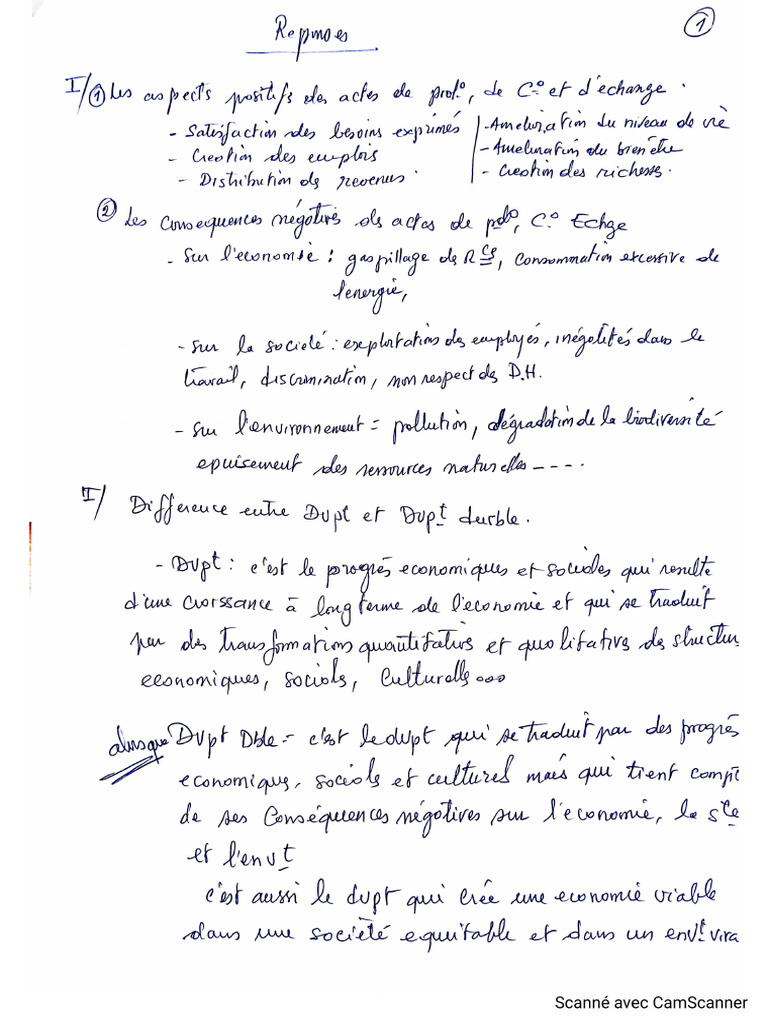 Reponses
1
I/ 1 Les aspects positifs des actes de prod°, de C° et d'échange.
- Satisfaction des besoins exprimés
- Creation des emplois
- Distribution des revenus.
- Amelioration du niveau de vie
- Amelioration du bien être
- Creation des richesses.
2 Les consequences négatives des actes de pdo, C° Echge
- Sur l'economie : gaspillage de Rces, consommation excessive de
l'energie,
- Sur la societé : exploitation des employés, inégalités dans le
travail, discrimination, non respect des D.H.
- Sur l'environnement = pollution, dégradation de la biodiversité
epuisement des ressources naturelles ----.
I/ Difference entre Dvpt et Dvpt durble.
- Dvpt : c'est le progrès economiques et sociales qui resulte
d'une croissance à long terme de l'economie et qui se traduit
par des transformations quantitatives et qualitatives des structur
economiques, socials, Culturelles ...
alors que Dvpt Dble - c'est le dvpt qui se traduit par des progrès
economique, socials et culturel mais qui tient compte
de ses Conséquences négatives sur l'economie, la sté
et l'envt
c'est aussi le dvpt qui crée une economie viable
dans une société equitable et dans un envt viva
Scanné avec CamScanner